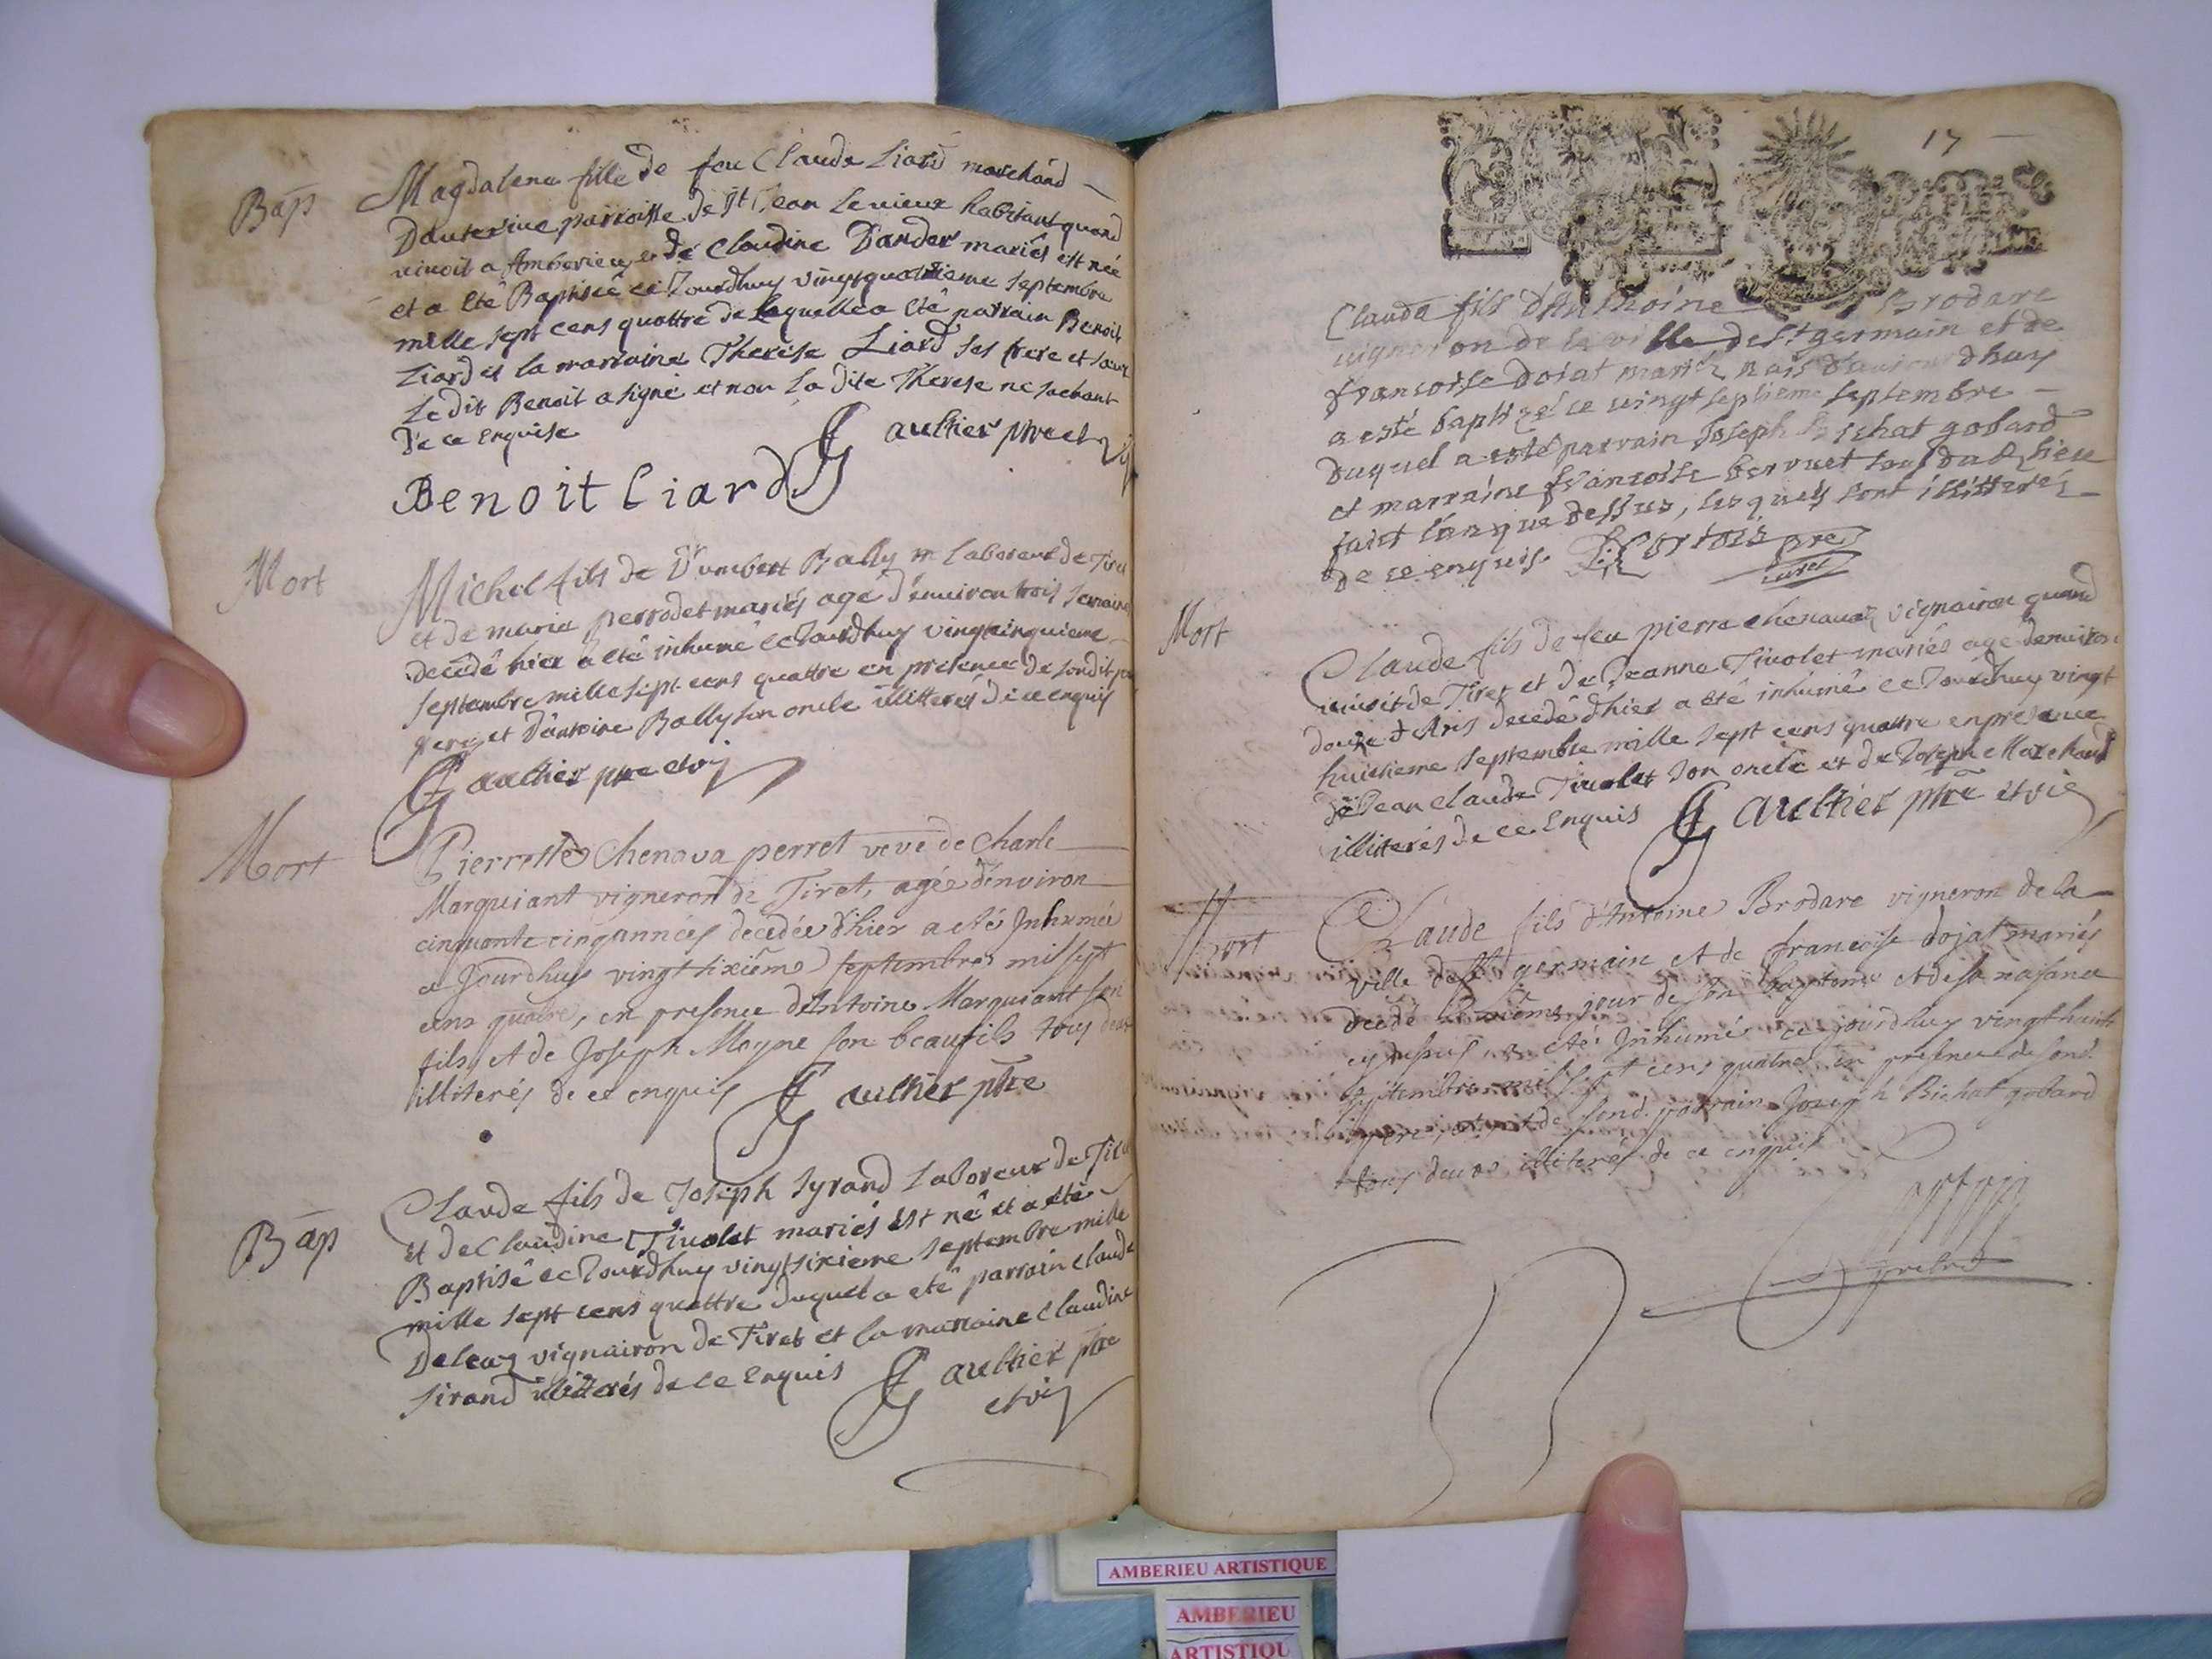 Bap
Magdalena fille de feu Claude Liard marchand
Dauterive parroisse de St Jean le vieux habitant quand
vivoit a Amberieu et de Claudine Dandes mariés est née
et a eté Baptisée ce Jourdhuy vingtquatrieme septembre
mille sept cens quattre de laquelle a eté parrain Benoit
Liard et la marraine Therese Liard ses frere et sœur
Le dit Benoit a signé et non la dite Therese ne sachant
de ce enquise
Gaulthier ptre et vic
Benoit Liard
Mort
Michel fils de Humbert Bally laboreur de Tiret
et de marie perrodet mariés agé d'environ trois semaines
decedé hier a eté inhumé ce Jourdhuy vingtcinquieme
septembre mille sept cens quattre en presence de sondit
pere et d'antoine Bally son oncle illitterés de ce enquis
Gaulthier ptre et vic
Mort
Pierrette Chenava perret veve de Charle
Marquiant vigneron de Tiret, agée d'environ
cinquante cinq années decedée d'hier a eté Inhumée
ce Jourdhuy vingtsixiême septembre mil sept
cens quatre, en presence d'Antoine Marquiant son
fils et de Joseph Moyne son beaufils tous deux
illiterés de ce enquis Gaulthier ptre
Bap
Claude fils de Joseph Syrand Laboreur de Tiret
et de Claudine Tivolet mariés est né et a eté
Baptisé ce Jourdhuy vingtsixieme septembre mille
mille sept cens quattre duquel a eté parrain Claude
vignairon de Tiret et la marraine Claudine
Sirand illitterés de ce enquis Gaulthier ptre
et vic
17
Claude fils d'Anthoine Brodare
vigneron de la ville de St germain et de
francoise dojat mariéz nais d'aujourdhuy
a esté baptizé ce vingtseptieme septembre
duquel a esté parrain Joseph Bichat gobard
et marraine francoise bervuet tous du dt lieu
faict l'an que dessus, lesquels sont illitterés
de ce enquis. Cortois pre
curé
Mort
Claude fils de feu pierre chenavaz vignairon quand
vivoit de Tiret et de Jeanne Tivolet mariés agé denviron
douze Ans decedé d'hier a eté inhumé ce Jourdhuy vingt
huictieme septembre mille sept cens quattre en presence
de Jean claude Tivolet son oncle et de Joseph Marchand
illitterés de ce enquis Gaulthier ptre et vic
Mort
Claude fils d'Antoine Brodare vigneron de la
ville de St germain et de francoise dojat mariés
decedé jour de son baptome et de sa naisance
cy dessus, a eté Inhumé ce jourdhuy vingthuict
septembre mil sept cens quatre en presence de sond.
pere, et de sond. parrain Joseph Bichat gobard
tous deux illiterés de ce enquis
AMBERIEU ARTISTIQUE
AMBERIEU
ARTISTIQU